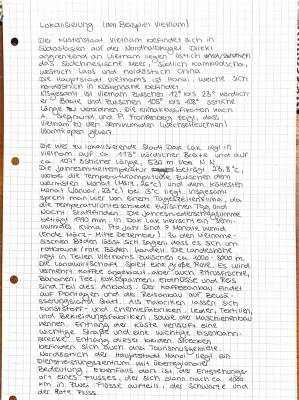 Lokalisierung (am Beispiel Vietnam)
Der Küstenstaat Vietnam befindet sich in
Südostasien auf der Nordhalbkugel. Direkt
angrenzend an Vietnam liegen östlich
das südchinesische Meer, südlich Kambodscha,
westlich Laos und nordöstlich China.
Die Hauptstadt Vietnams ist Hanoi, welche sich
nordöstlich in Küstennähe befindet.
Insgesamt ist Vietnam zwischen 12° bis 23° nördlich-
er Breite und zwischen 105° bis 108° östliche
Länge zu verordnen. Die Klimaklassifikation nach
A. Siegmund und P. Frankenberg zeigt, dass
Vietnam zu den semihumiden Wechselfeuchten
Warmtropen gehört.
Die West zu lokalisierende Stadt Dak Lak liegt in
Vietnam auf ca. 12° nördlicher Breite und auf
ca. 107° östlicher Länge, 530 m über N.N.
Die Jahresmitteltemperatur beträgt 23,8°C,
wobei die Temperaturamplitude zwischen dem
wärmsten Monat (März, 26°C) und dem kältesten
Monat (Januar, 23°C) bei 3°C liegt. Insgesamt
spricht man hier von einem Tageszeitenklima, da
die Temperaturunterschiede zwischen Tag und
Nacht stattfinden. Die Jahresniederschlagssumme
beträgt 1770 mm. In Dak Lak herrscht ein semi-
humides Klima. Pro Jahr sind 9 Monate humid
(Ende März - Mitte Dezember). Zu den vietname-
sischen Böden lässt sich sagen, dass es sich um
rotbraune / rote Böden handelt. Die Landeshöhe
liegt in Teilen Vietnams zwischen ca. 1000 - 3000 m.
Die Landwirtschaft spielt eine große Rolle. Es wird
vermehrt Kaffee angebaut, aber auch Zitrusfrüchte,
Bananen, Tee, Kokospalmen, Erdnüsse und Reis
sind Teil des Anbaus. Der Kaffeeanbau findet
auf Plantagen und der Reisanbau auf Bewäs-
serungsland statt. Als Fabriken lassen sich
Kunststoff- und Chemiefabriken, Leder, Textilien,
und Bekleidungsfabriken, sowie der Maschinenbau
nennen. Entlang der Küste verläuft eine
wichtige Straße und eine wichtige Eisenbahn-
strecke. Entlang dieser beiden Strecken
befinden sich auch drei Tourismusgebiete.
Nordöstlich der Hauptstadt Hanoi liegt ein
Dienstleistungszentrum mit überregionaler
Bedeutung. Ebenfalls dort ist der Entstehungs-
ort eines Flusses, der sich dann nach ca. 1000
km in zwei Flüsse aufteilt, der Schwarze und
der Rote Fluss.